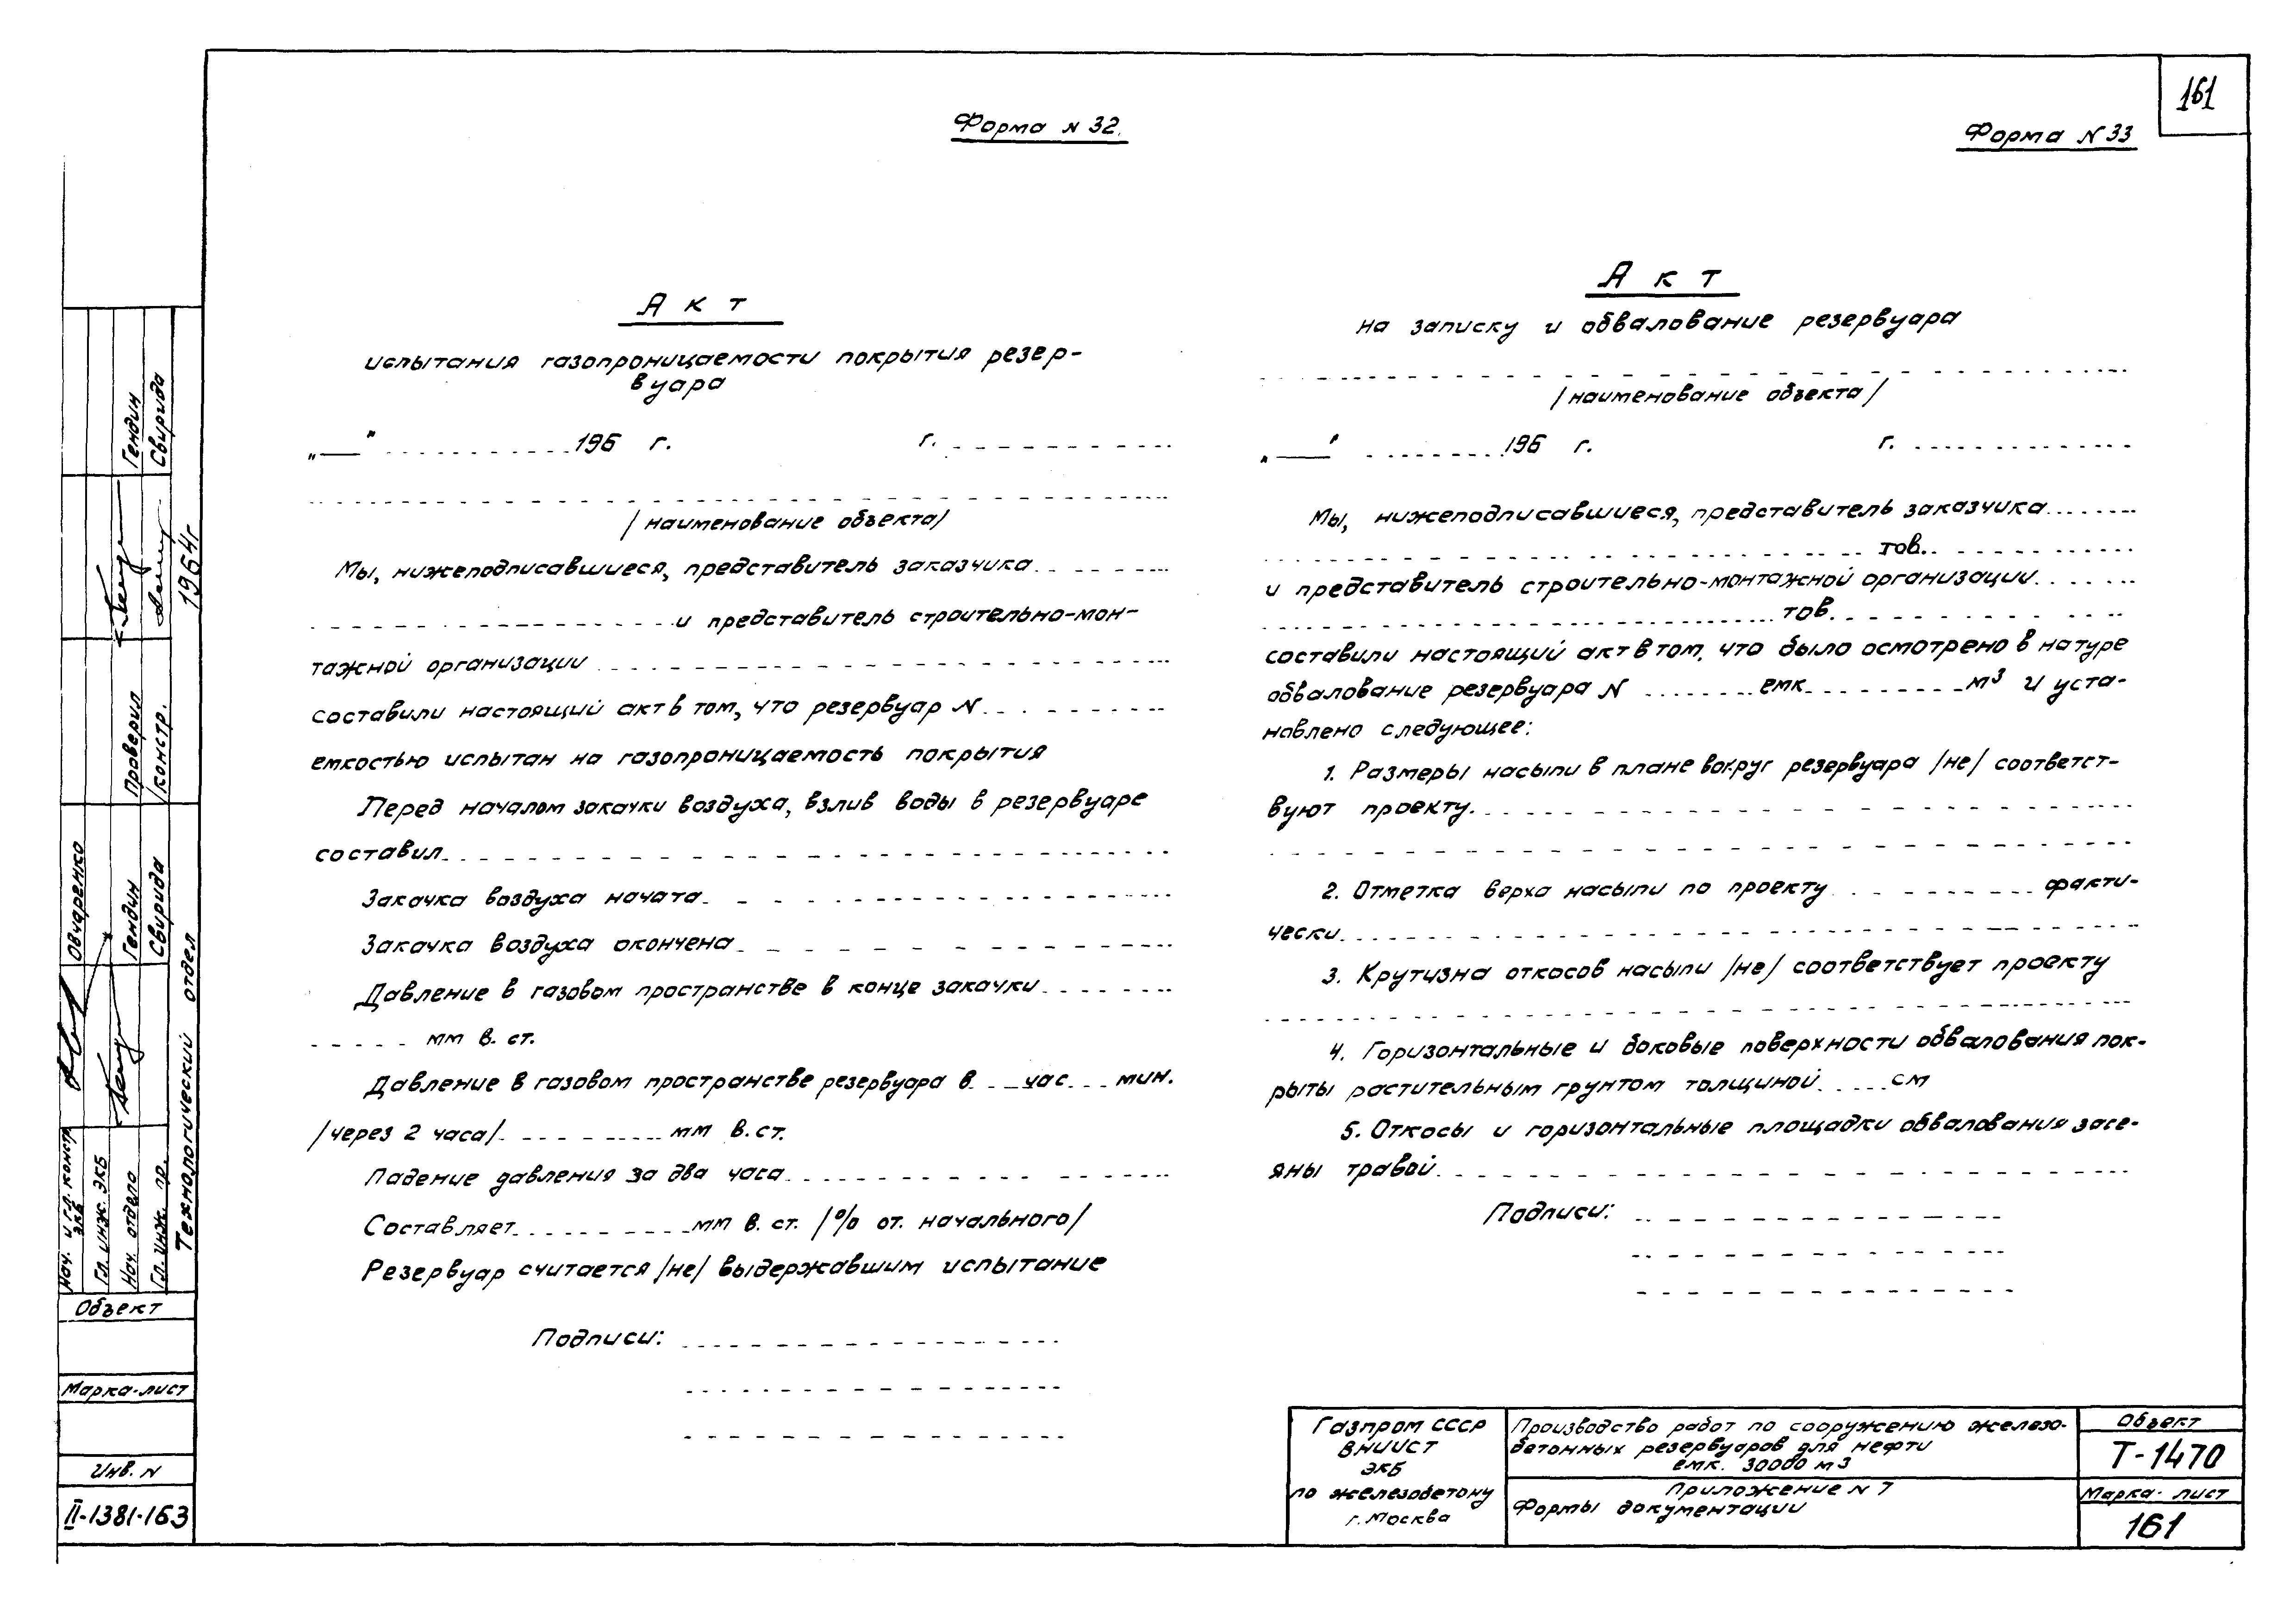 161
Форма N 32.
Акт
испытания газопроницаемости покрытия резер-
вуара
„ " 196 г. г.
/наименование объекта/
Мы, нижеподписавшиеся, представитель заказчика
и представитель строительно-мон-
тажной организации
составили настоящий акт в том, что резервуар N
емкостью испытан на газопроницаемость покрытия
Перед началом закачки воздуха, взлив воды в резервуаре
составил
Закачка воздуха начата
Закачка воздуха окончена
Давление в газовом пространстве в конце закачки
мм в. ст.
Давление в газовом пространстве резервуара в час мин.
/через 2 часа/ мм в.ст.
Падение давления за два часа
Составляет мм в. ст. /% от. начального/
Резервуар считается /не/ выдержавшим испытание
Подписи:
Форма N 33
Акт
на записку и обвалование резервуара
/наименование объекта/
„ " 196 г. г.
Мы, нижеподписавшиеся, представитель заказчика
тов.
и представитель строительно-монтажной организации
тов.
составили настоящий акт в том, что было осмотрено в натуре
обвалование резервуара N емк. м3 и уста-
новлено следующее:
1. Размеры насыпи в плане вокруг резервуара /не/ соответст-
вуют проекту.
2. Отметка верха насыпи по проекту факти-
чески
3. Крутизна откосов насыпи /не/ соответствует проекту
4. Горизонтальные и боковые поверхности обвалования пок-
рыты растительным грунтом толщиной см
5. Откосы и горизонтальные площадки обвалования засе-
яны травой
Подписи:
Газпром СССР
ВНИИСТ
ЭКБ
по железобетону
г. Москва
Производство работ по сооружению железо-
бетонных резервуаров для нефти
емк. 30000 м3
Приложение N 7
Формы документации
Объект
Т-1470
Марка-лист
161
Нач. и гл. констр. ЭКБ
Овчаренко
Гл. инж. ЭКБ
Нач. отдела
Гендин
Проверил
Гендин
Гл. инж. пр.
Свирида
/констр.
Свирида
Технологический отдел
1964г
Объект
Марка-лист
Инв. N
II-1381-163